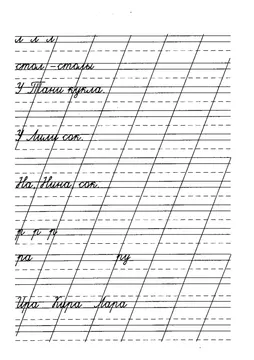 л л л
стол - столы
У Тани кукла.
У Лили сок.
На, Нина, сок.
р р р
ра ру
Ира Кира Лара